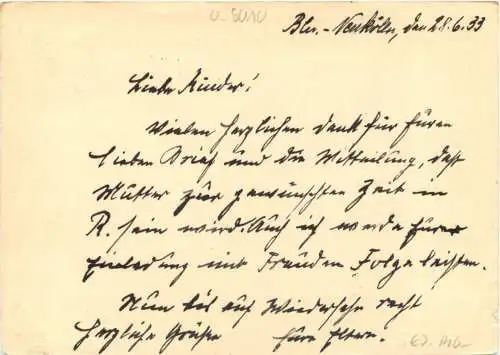 U-5010
Bln.-Neukölln, den 28.6.33
Liebe Kinder!
Vielen herzlichen Dank für Euren
lieben Brief und die Mitteilung, daß
Mutter zur gewünschten Zeit in
R. sein wird. Auch ich werde Eurer
Einladung mit Freuden Folge leisten.
Nun bis auf Wiedersehn recht
herzliche Grüße Eure Eltern.